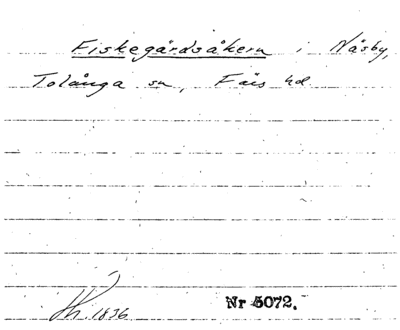 Fiskegårdsåkern i Näsby,
Tolånga sn, Färs hd
Nr 5072.
1836